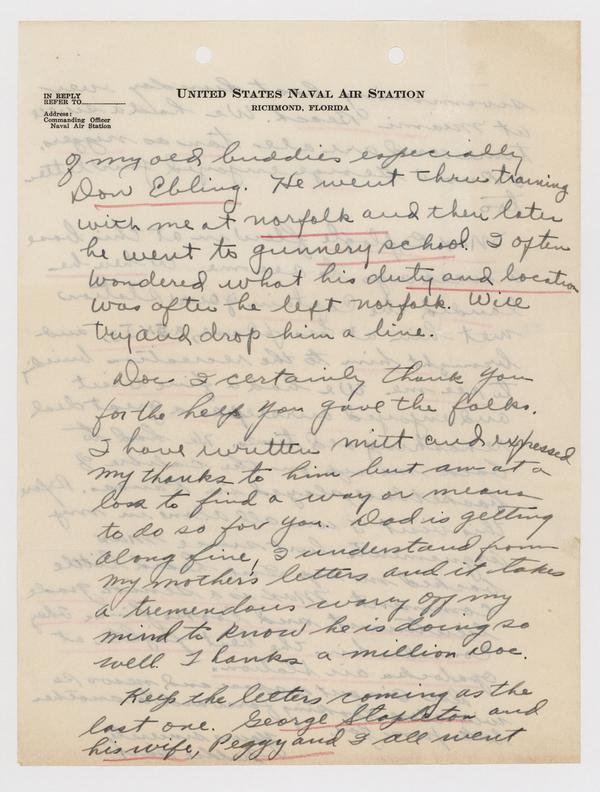 IN REPLY
REFER TO
Address:
Commanding Officer
Naval Air Station
UNITED STATES NAVAL AIR STATION
RICHMOND, FLORIDA
of my old buddies especially
Don Ebling. He went thru training
with me at norfolk and then later
he went to gunnery school. I often
wondered what his duty and location
was after he left norfolk. Will
try and drop him a line.
Doc I certainly thank you
for the help you gave the folks.
I have written Milt and expressed
my thanks to him but am at a
loss to find a way or means
to do so for you. Dad is getting
along fine, I understand from
my mother's letters and it takes
a tremendous worry off my
mind to know he is doing so
well. Thanks a million Doc.
Keep the letters coming as the
last one. George Stapleton and
his wife, Peggy and I all went